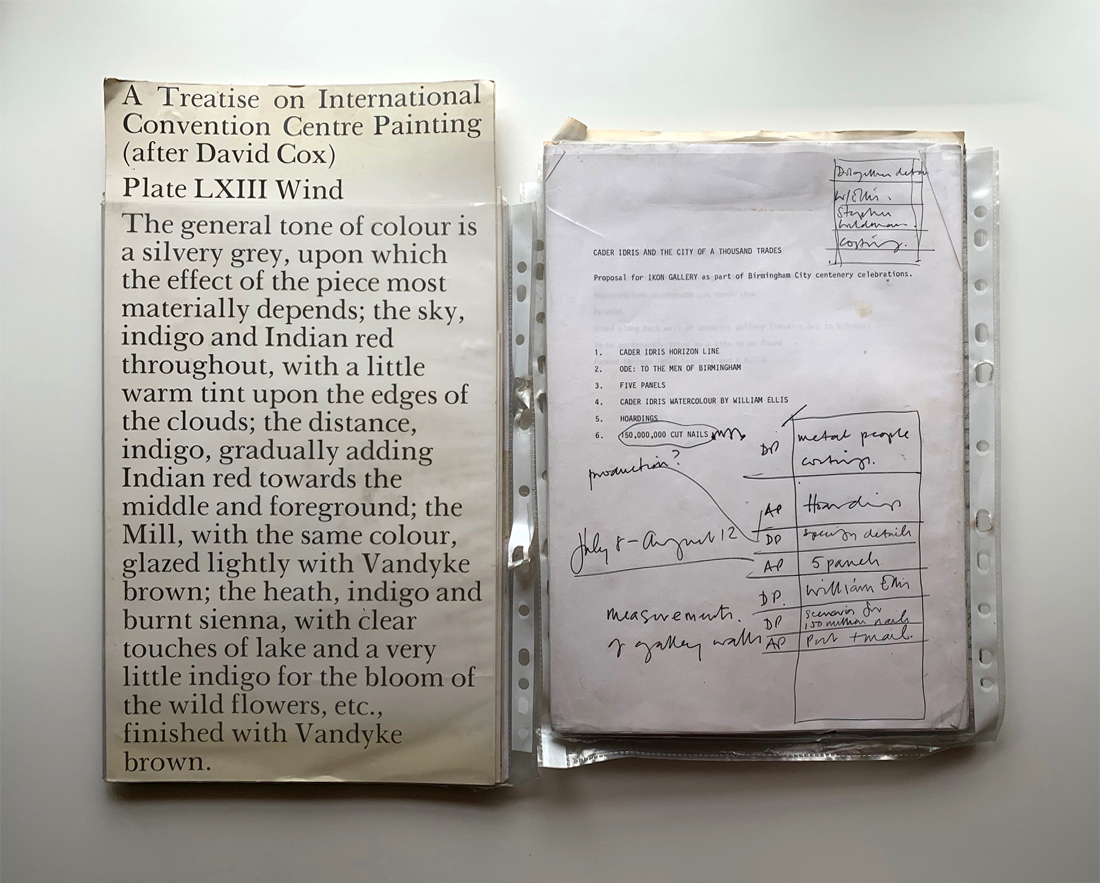 A Treatise on International
Convention Centre Painting
(after David Cox)
Plate LXIII Wind
The general tone of colour is
a silvery grey, upon which
the effect of the piece most
materially depends; the sky,
indigo and Indian red
throughout, with a little
warm tint upon the edges of
the clouds; the distance,
indigo, gradually adding
Indian red towards the
middle and foreground; the
Mill, with the same colour,
glazed lightly with Vandyke
brown; the heath, indigo and
burnt sienna, with clear
touches of lake and a very
little indigo for the bloom of
the wild flowers, etc.,
finished with Vandyke
brown.
W/Ellis.
Stephen
Wildman.
costing.
CADER IDRIS AND THE CITY OF A THOUSAND TRADES
Proposal for IKON GALLERY as part of Birmingham City centenery celebrations.
1. CADER IDRIS HORIZON LINE
2. ODE: TO THE MEN OF BIRMINGHAM
3. FIVE PANELS
4. CADER IDRIS WATERCOLOUR BY WILLIAM ELLIS
5. HOARDINGS
6. 150,000,000 CUT NAILS
DP metal people
costings.
production?
AP Hoardings
July 8 - August 12
DP details
AP 5 panels
DP. William Ellis
measurements.
DP scenarios for
150 million nails
of gallery walls
AP Post + mail.